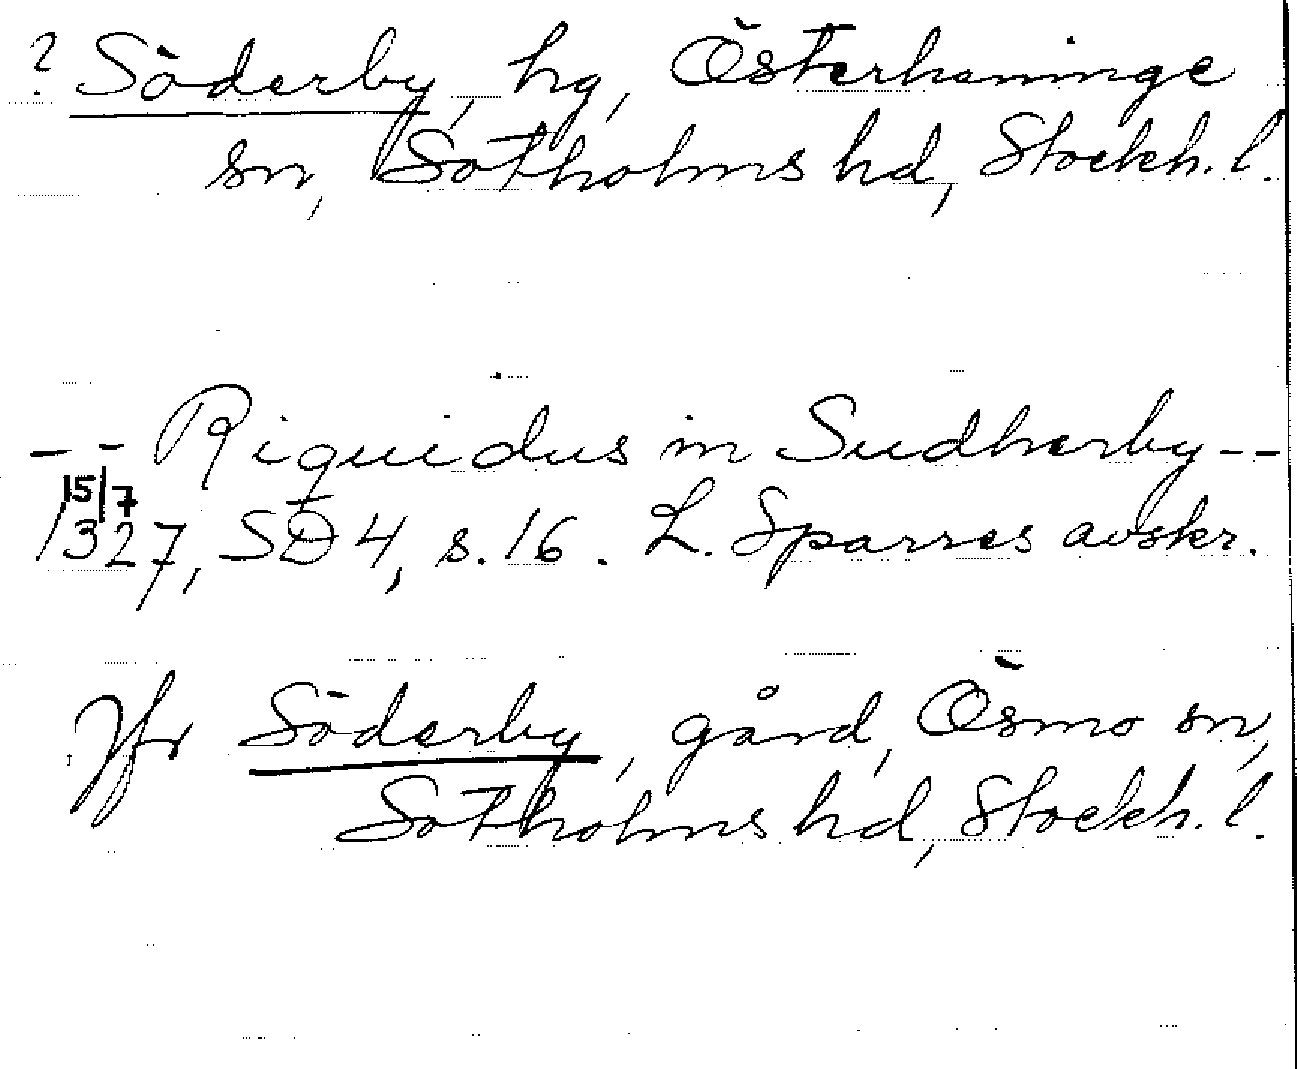 ? Söderby, hg, Österhaninge
sn, Sotholms hd, Stockh. l.
-- Riquidus in Sudherby --
15/7
1327, SD 4, s. 16. L. Sparres avskr.
Jfr Söderby, gård, Ösmo sn,
Sotholms hd, Stockh. l.